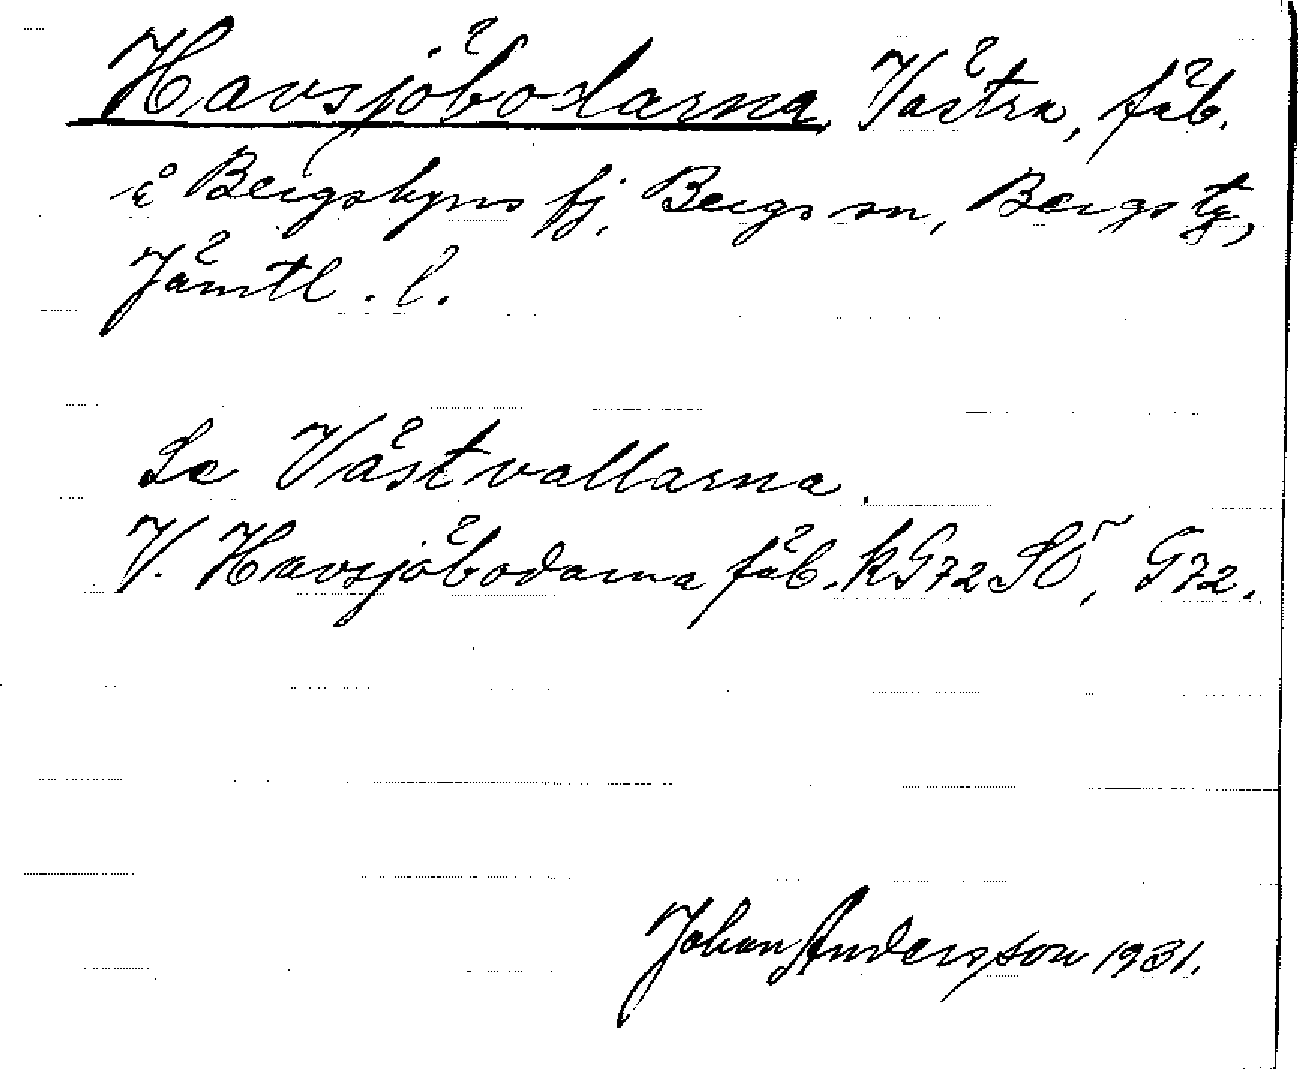 Havsjöbodarna, Västra, fäb.
å Bergsbyns fj. Bergs sn, Bergs tg,
Jämtl. l.
Se Västvallarna.
V. Havsjöbodarna fäb. k G72 SÖ, G72.
Johan Andersson 1931.